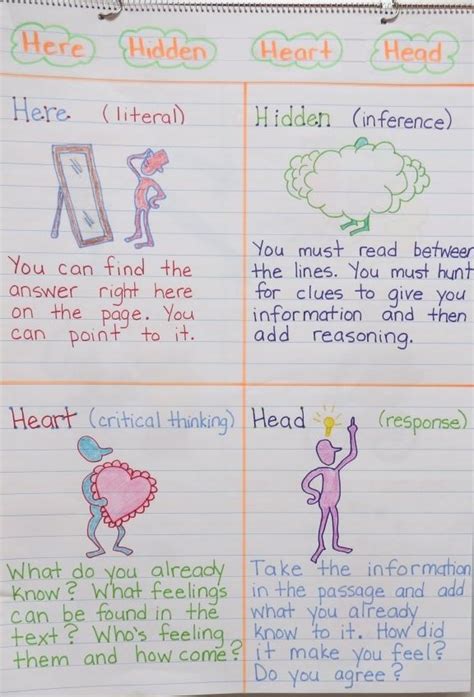 Here Hidden Heart Head
Here (literal)
You can find the
answer right here
on the page. You
can point to it.
Hidden (inference)
You must read between
the lines. You must hunt
for clues to give you
information and then
add reasoning.
Heart (critical thinking)
What do you already
know? What feelings
can be found in the
text? Who's feeling
them and how come?
Head (response)
Take the information
in the passage and add
what you already
know to it. How did
it make you feel?
Do you agree?